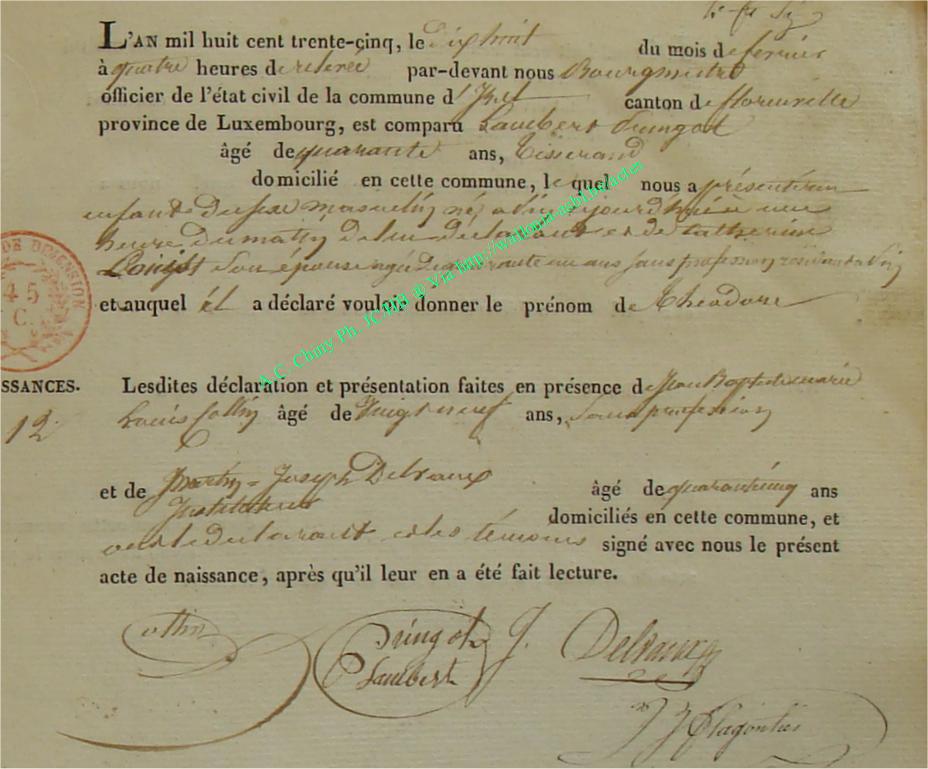 L'AN mil huit cent trente-cinq, le dix huit du mois de fevrier
à quatre heures de relevée par-devant nous Bourgmestre
officier de l'état civil de la commune d'Izel canton de florenville
province de Luxembourg, est comparu Lambert
âgé de quarante ans, tisserand
domicilié en cette commune, le quel nous a présenté un
enfant du sexe masculin né à aujourd'hui à une
heure du matin de lui déclarant et de Catherine
son épouse agée de quarante un ans sans profession
et auquel il a déclaré vouloir donner le prénom de Theodore
SSANCES. Lesdites déclaration et présentation faites en présence de Jean Baptiste marie
12 Louis Collin âgé de vingt neuf ans, sans profession
et de Martin-Joseph Delvaux âgé de quarante cinq ans
Instituteur
domiciliés en cette commune, et
ont le declarant et les témoins signé avec nous le présent
acte de naissance, après qu'il leur en a été fait lecture.
Lambert
J. Delvaux
DE DIMENSION
45
C.
A.C. Chiny Ph. JC HH @ Via http://wallonia-asbl.be/actes